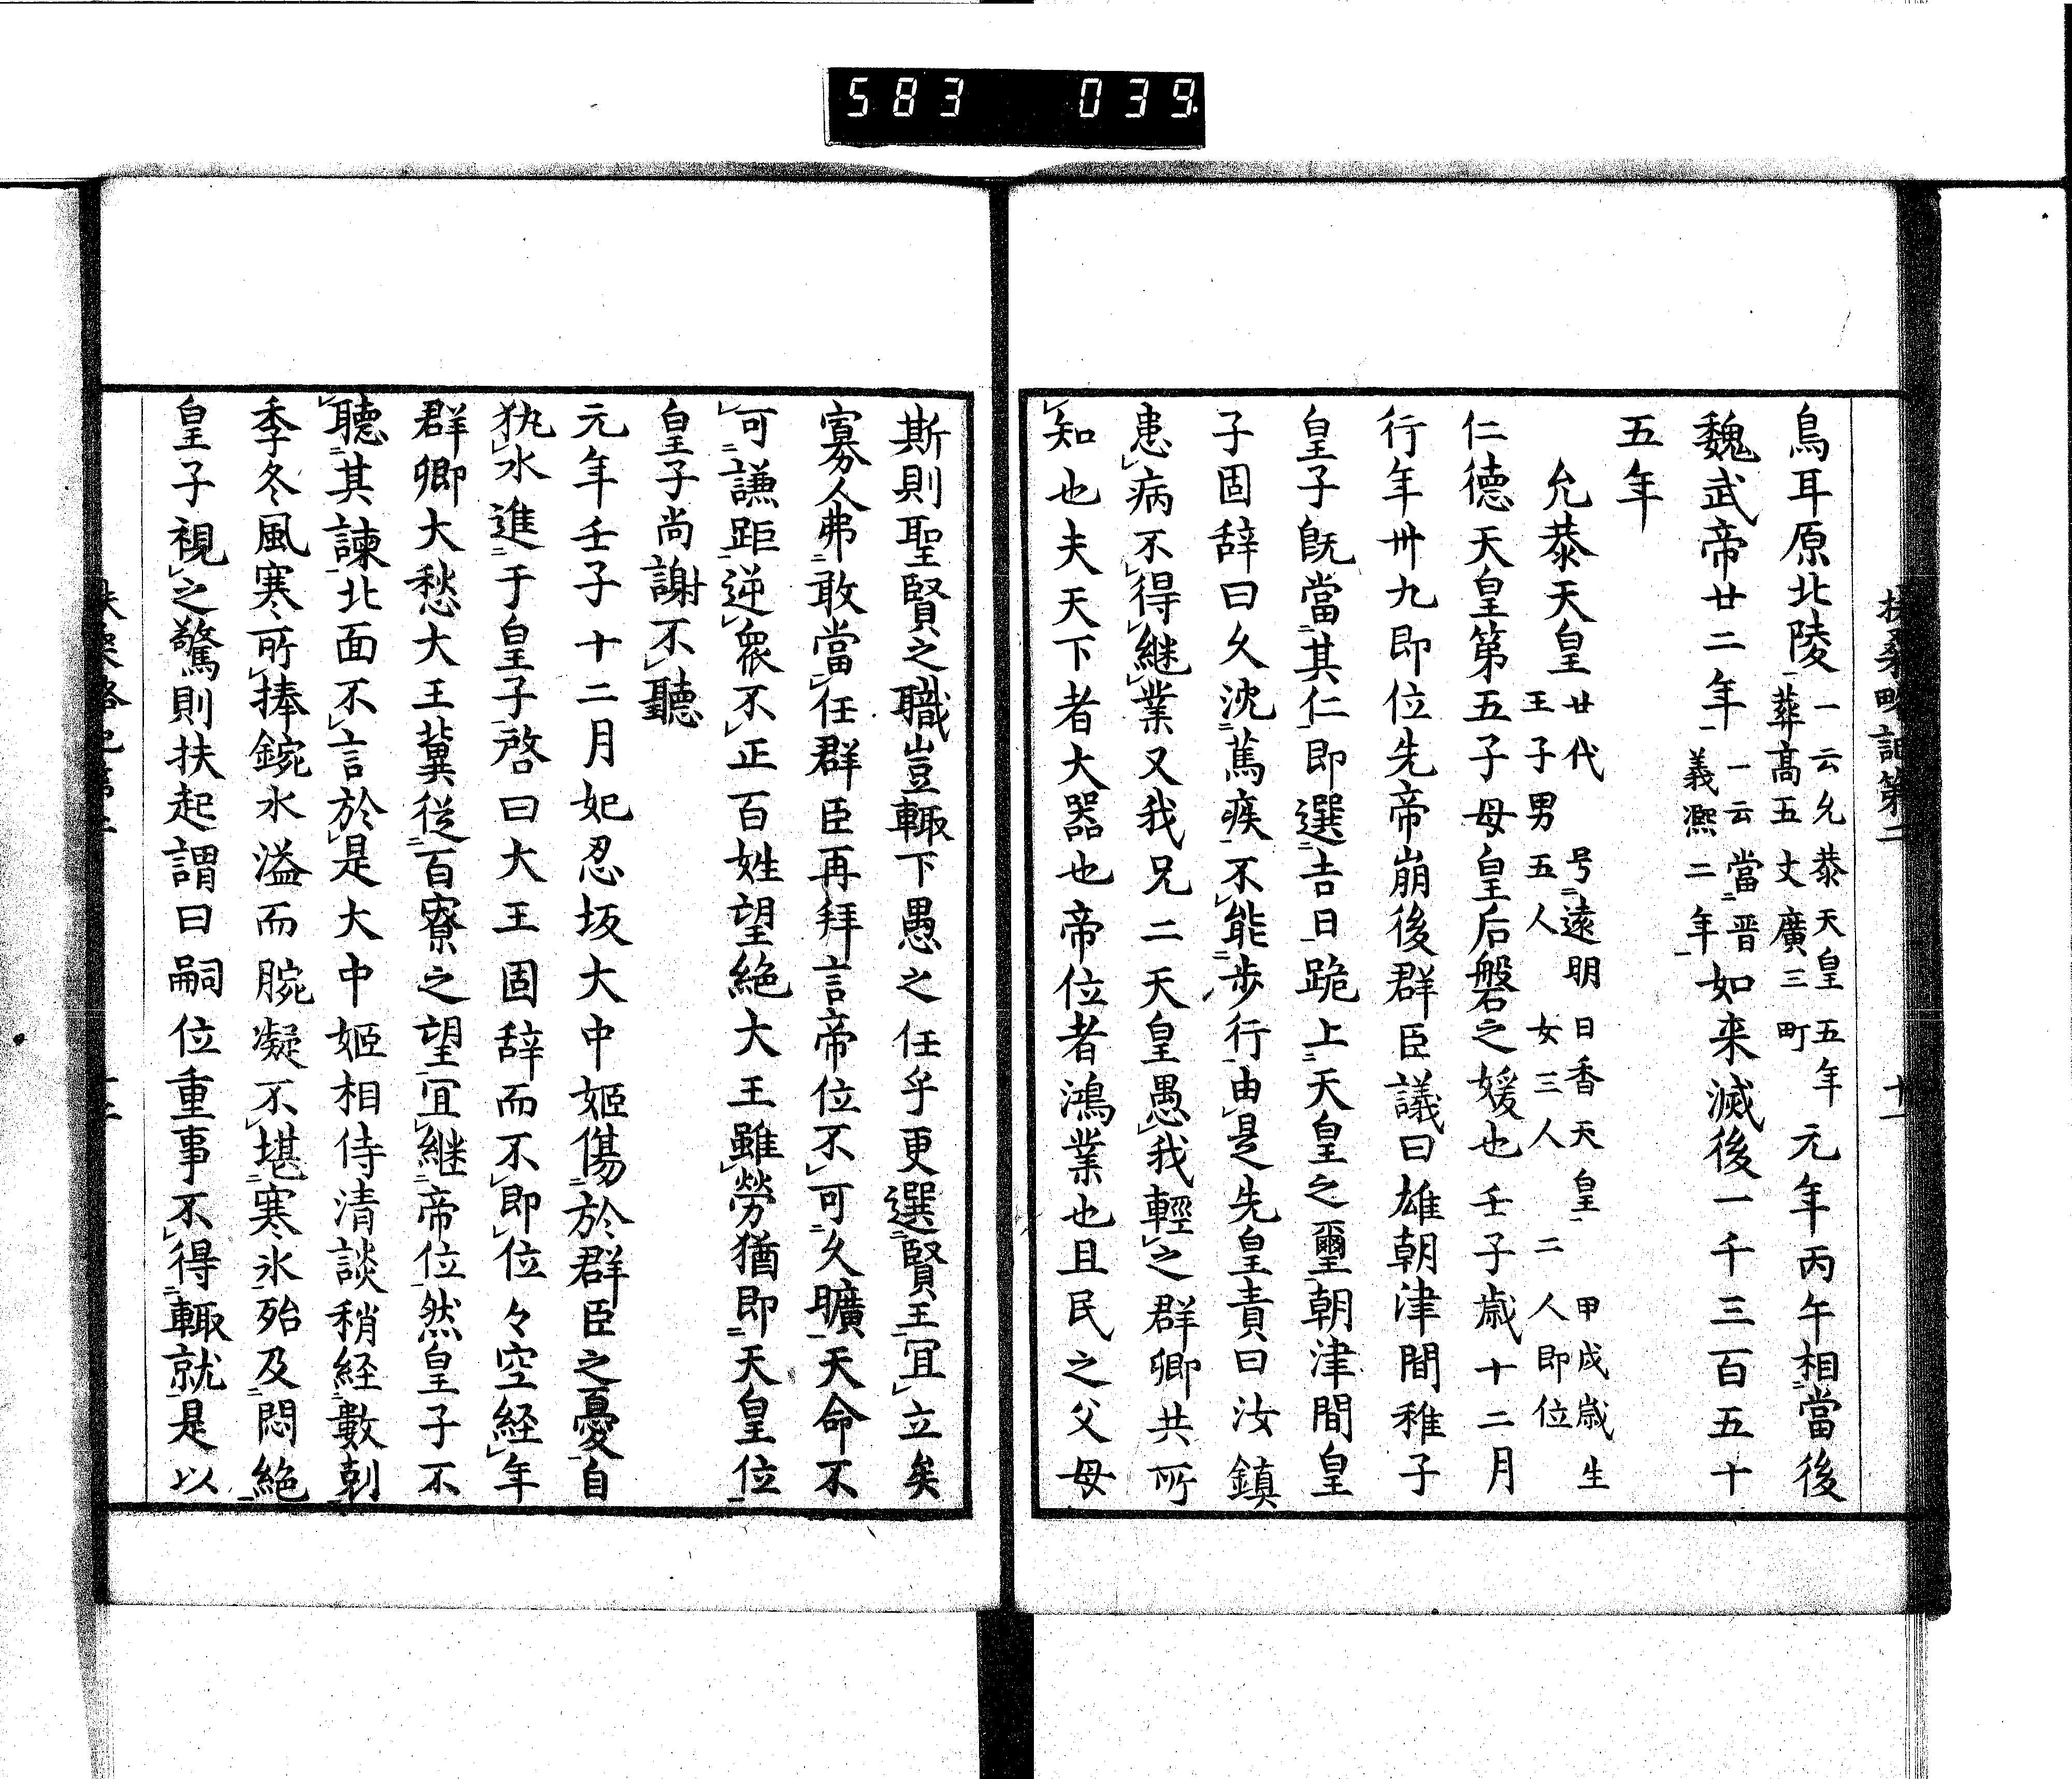 583 039
扶桑略記第二 十一
鳥耳原北陵一云允恭天皇五年葬高五丈廣三町元年丙午相當後
魏武帝廿二年一云當晋義凞二年如来滅後一千三百五十
五年
允恭天皇廿代 号遠明日香天皇 甲戌歳生王子男五人 女三人 二人即位
仁德天皇第五子母皇后磐之媛也壬子歳十二月
行年卅九即位先帝崩後群臣議曰雄朝津間稚子
皇子旣當其仁即選吉日跪上天皇之璽朝津間皇
子固辞曰久沈篤疾不能歩行由是先皇責曰汝鎮
患病不得継業又我兄二天皇愚我輕之群卿共所
知也夫天下者大器也帝位者鴻業也且民之父母
斯則聖賢之職豈輙下愚之任乎更選賢王冝立矣
寡人弗敢當任群臣再拜言帝位不可久曠天命不
可謙距逆衆不正百姓望絶大王雖勞猶即天皇位
皇子尚謝不聽
元年壬子十二月妃忍坂大中姫傷於群臣之憂自
执水進于皇子啓曰大王固辞而不即位々空経年
群卿大愁大王冀従百寮之望冝継帝位然皇子不
聽其諫北面不言於是大中姫相侍清談稍経數剋
季冬風寒所捧鋺水溢而腕凝不堪寒氷殆及悶絶
皇子視之驚則扶起謂曰嗣位重事不得輙就是以